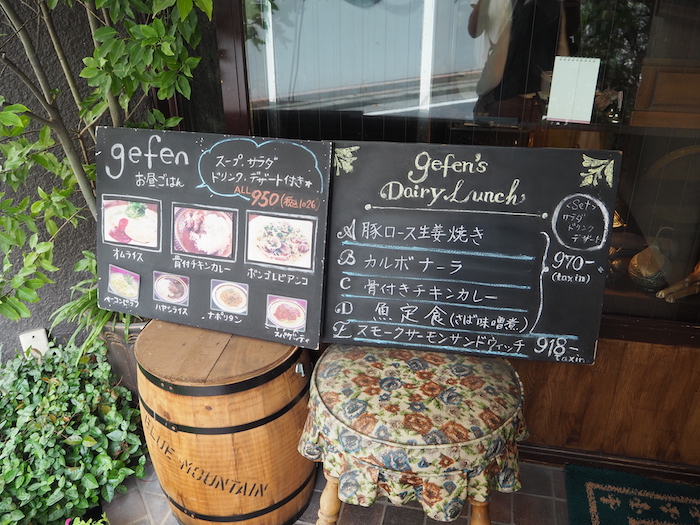 gefen
お昼ごはん
スープ、サラダ
ドリンク、デザート付き
ALL 950 (税込1026)
オムライス
骨付チキンカレー
ボンゴレビアンコ
ベーコンピラフ
ハヤシライス
ナポリタン
スパゲティー
gefen's
Dairy Lunch
A 豚ロース生姜焼き
B カルボナーラ
C 骨付きチキンカレー
D 魚定食(さば味噌煮)
E スモークサーモンサンドウィッチ 918-
taxin
<Set>
サラダ
ドリンク
デザート
970-
(taxin)
BLUE MOUNTAIN